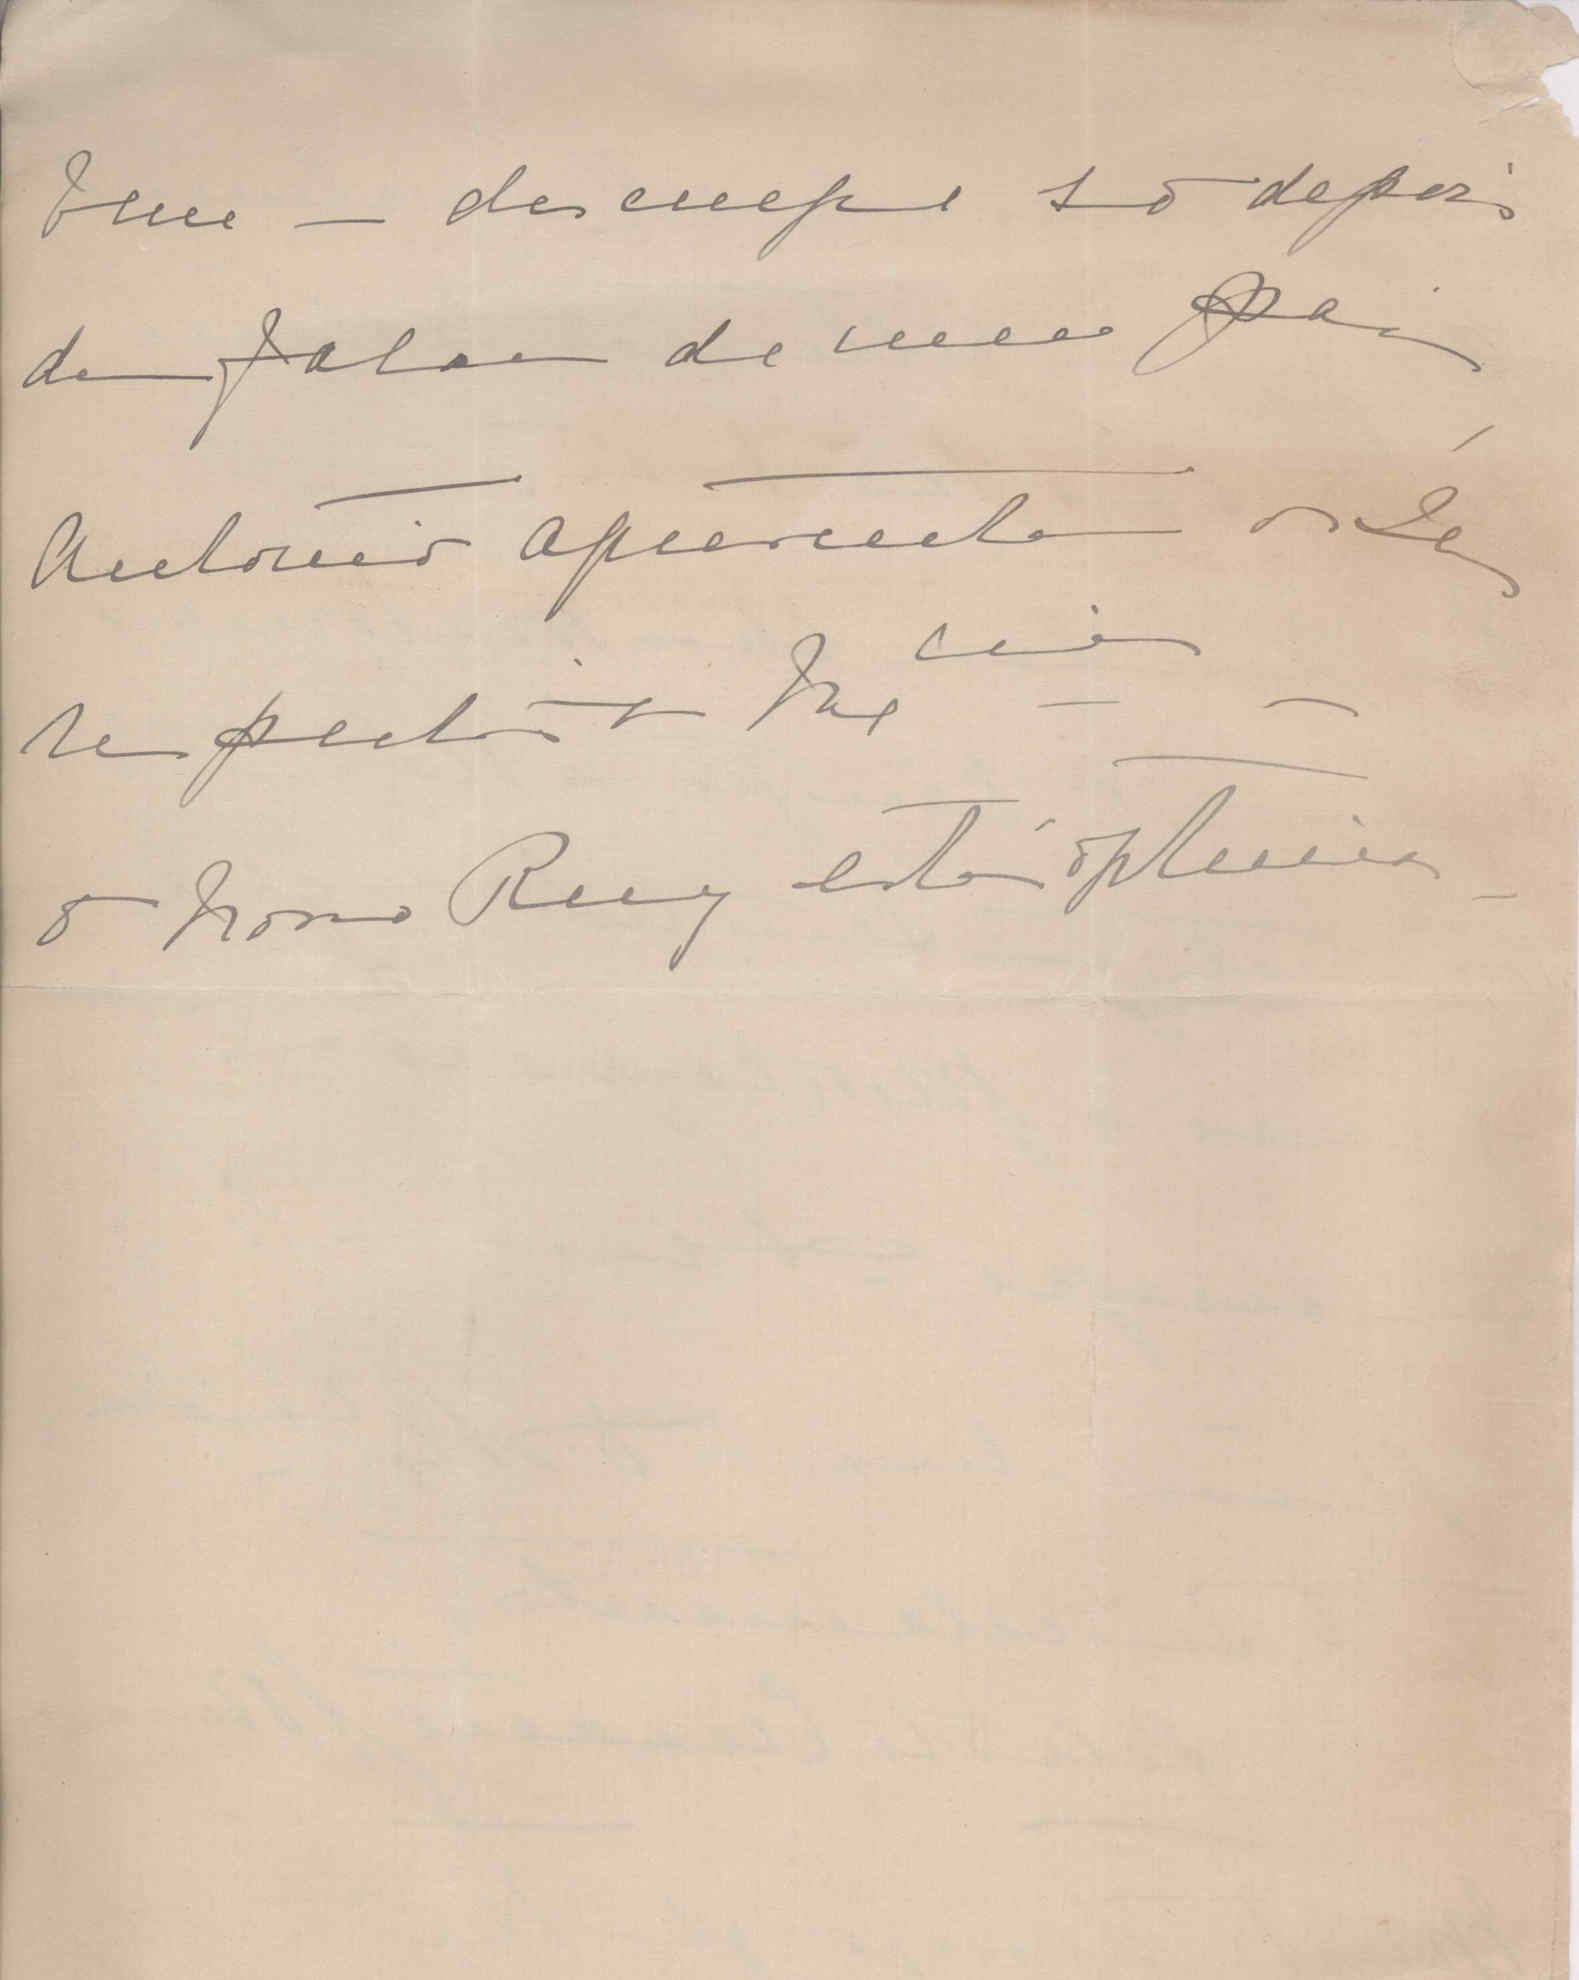 – desculpe só depois
de falar de meu Pai
Antonio apresenta os seus
respeitos
o nosso Ruy está optimo –